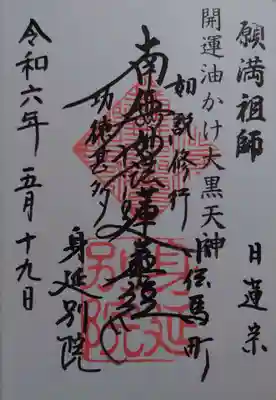 願満祖師 日蓮宗
開運油かけ大黒天神
如説修行 旧伝馬町
南無妙法蓮華経
功徳甚多 身延別院
令和六年 五月十九日
身延別院